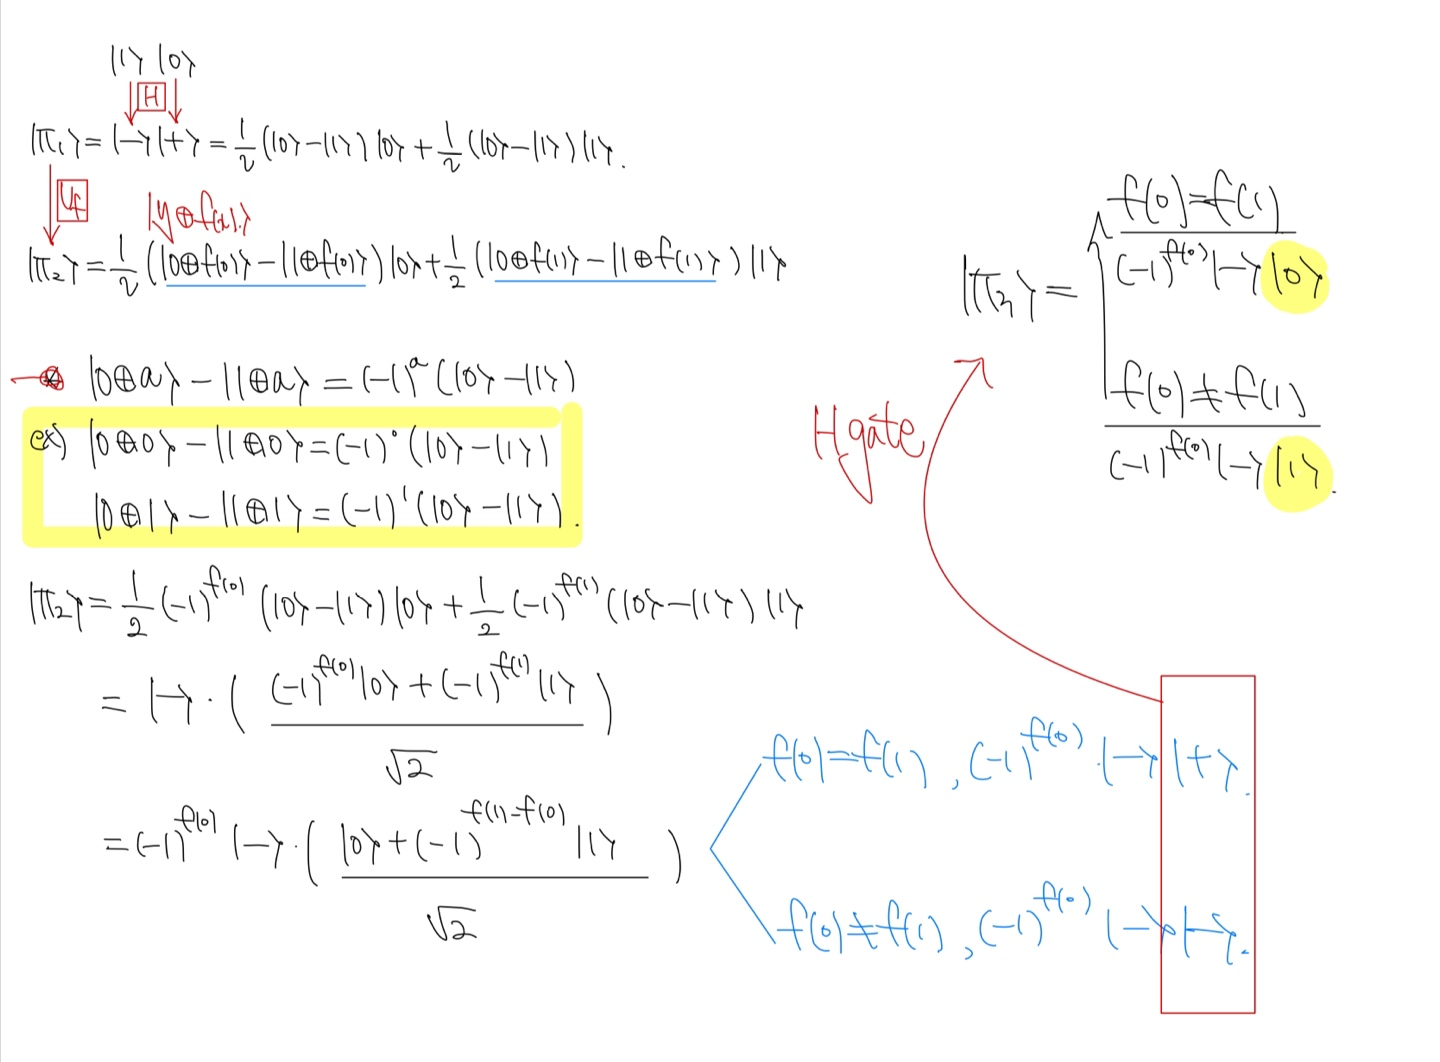 |1⟩ |0⟩
H
|π₁⟩ = |−⟩|+⟩ = 1/2 (|0⟩−|1⟩)|0⟩ + 1/2 (|0⟩−|1⟩)|1⟩.
Uf |y⊕f(x)⟩
|π₂⟩ = 1/2 (|0⊕f(0)⟩ − |1⊕f(0)⟩)|0⟩ + 1/2 (|0⊕f(1)⟩ − |1⊕f(1)⟩)|1⟩
|0⊕a⟩ − |1⊕a⟩ = (−1)^a (|0⟩−|1⟩)
ex) |0⊕0⟩ − |1⊕0⟩ = (−1)^0 (|0⟩−|1⟩)
|0⊕1⟩ − |1⊕1⟩ = (−1)^1 (|0⟩−|1⟩).
|π₂⟩ = 1/2 (−1)^f(0) (|0⟩−|1⟩)|0⟩ + 1/2 (−1)^f(1) (|0⟩−|1⟩)|1⟩
= |−⟩·( ((−1)^f(0)|0⟩ + (−1)^f(1)|1⟩) / √2 )
= (−1)^f(0) |−⟩·( (|0⟩ + (−1)^f(1)−f(0) |1⟩) / √2 )
f(0)=f(1), (−1)^f(0)·|−⟩|+⟩.
f(0)≠f(1), (−1)^f(0) |−⟩|−⟩.
H gate
|π₃⟩ =
f(0)=f(1)
(−1)^f(0) |−⟩|0⟩
f(0)≠f(1)
(−1)^f(0) |−⟩|1⟩.